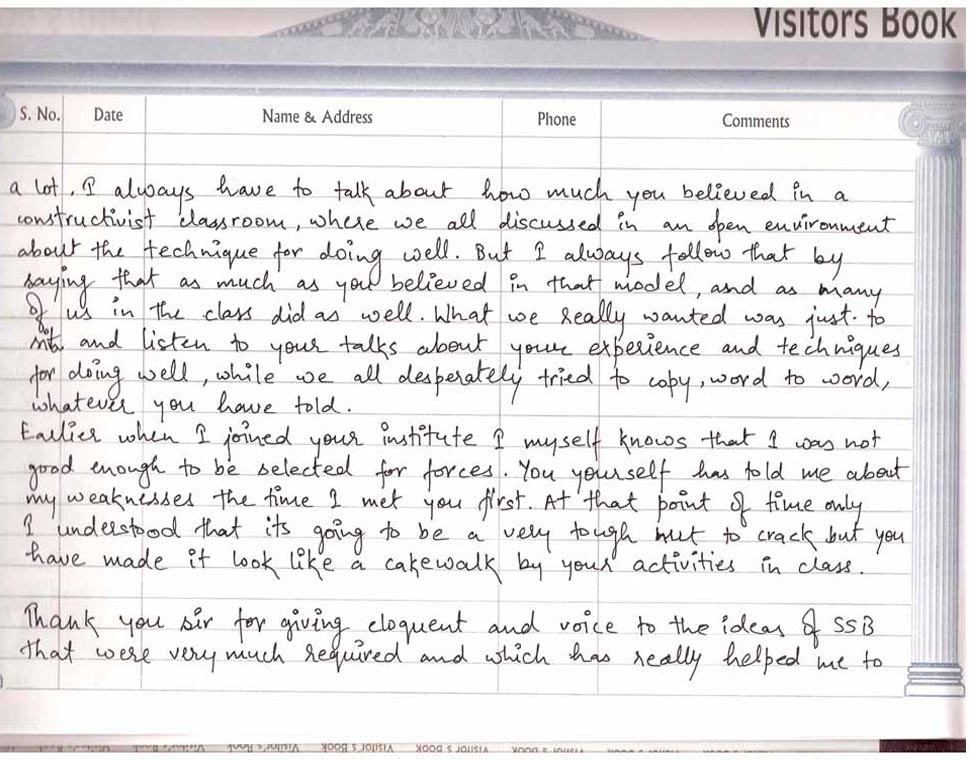 Visitors Book
S. No. Date Name & Address Phone Comments
a lot. I always have to talk about how much you believed in a
constructivist classroom, where we all discussed in an open environment
about the technique for doing well. But I always follow that by
saying that as much as you believed in that model, and as many
of us in the class did as well. What we really wanted was just to
sit and listen to your talks about your experience and techniques
for doing well, while we all desperately tried to copy, word to word,
whatever you have told.
Earlier when I joined your institute I myself knows that I was not
good enough to be selected for forces. You yourself has told me about
my weaknesses the time I met you first. At that point of time only
I understood that its going to be a very tough nut to crack but you
have made it look like a cakewalk by your activities in class.
Thank you sir for giving eloquent and voice to the ideas of SSB
that were very much required and which has really helped me to